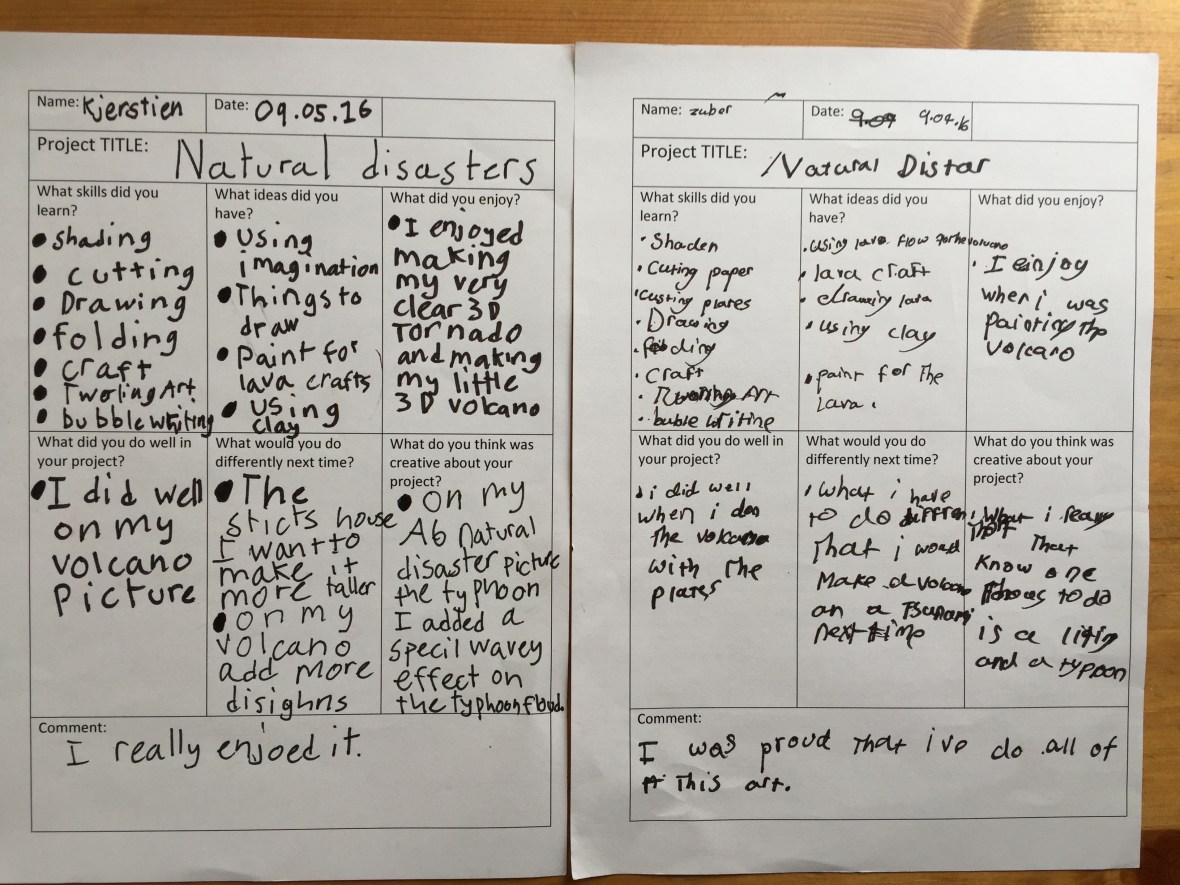 Name: Kjerstien
Date: 09.05.16
Project TITLE: Natural disasters
What skills did you
learn?
• shading
• cutting
• Drawing
• folding
• craft
• Twirling Art
• bubble writing
What ideas did you
have?
• Using
imagination
• Things to
draw
• Paint for
lava crafts
• using
clay
What did you enjoy?
• I enjoyed
making
my very
clear 3D
Tornado
and making
my little
3D volcano
What did you do well in
your project?
• I did well
on my
volcano
Picture
What would you do
differently next time?
• The
sticts house
I want to
make it
more taller
• on my
volcano
add more
disighns
What do you think was
creative about your
project?
• on my
A6 Natural
disaster picture
the typhoon
I added a
specil wavey
effect on
the typhoon
Comment:
I really enjoed it.
Name: zuber
Date: 9.09 9.04.16
Project TITLE: Natural Distar
What skills did you
learn?
• Shaden
• Cuting paper
• custing plates
• Drawing
• foding
• craft
• Art
• buble writine
What ideas did you
have?
• using lava flow for the volcano
• lava craft
• drawing lava
• using clay
• paint for The
lava.
What did you enjoy?
• I einjoy
when i was
painting the
volcano
What did you do well in
your project?
• i did well
when i don
the volcano
with the
plates
What would you do
differently next time?
• what i have
to do
That i woud
Make a volcano
an a Tsunami
next time
What do you think was
creative about your
project?
• What i really
That
Know one
to do
is a
and a typoon
Comment:
I was proud That ive do all of
This art.